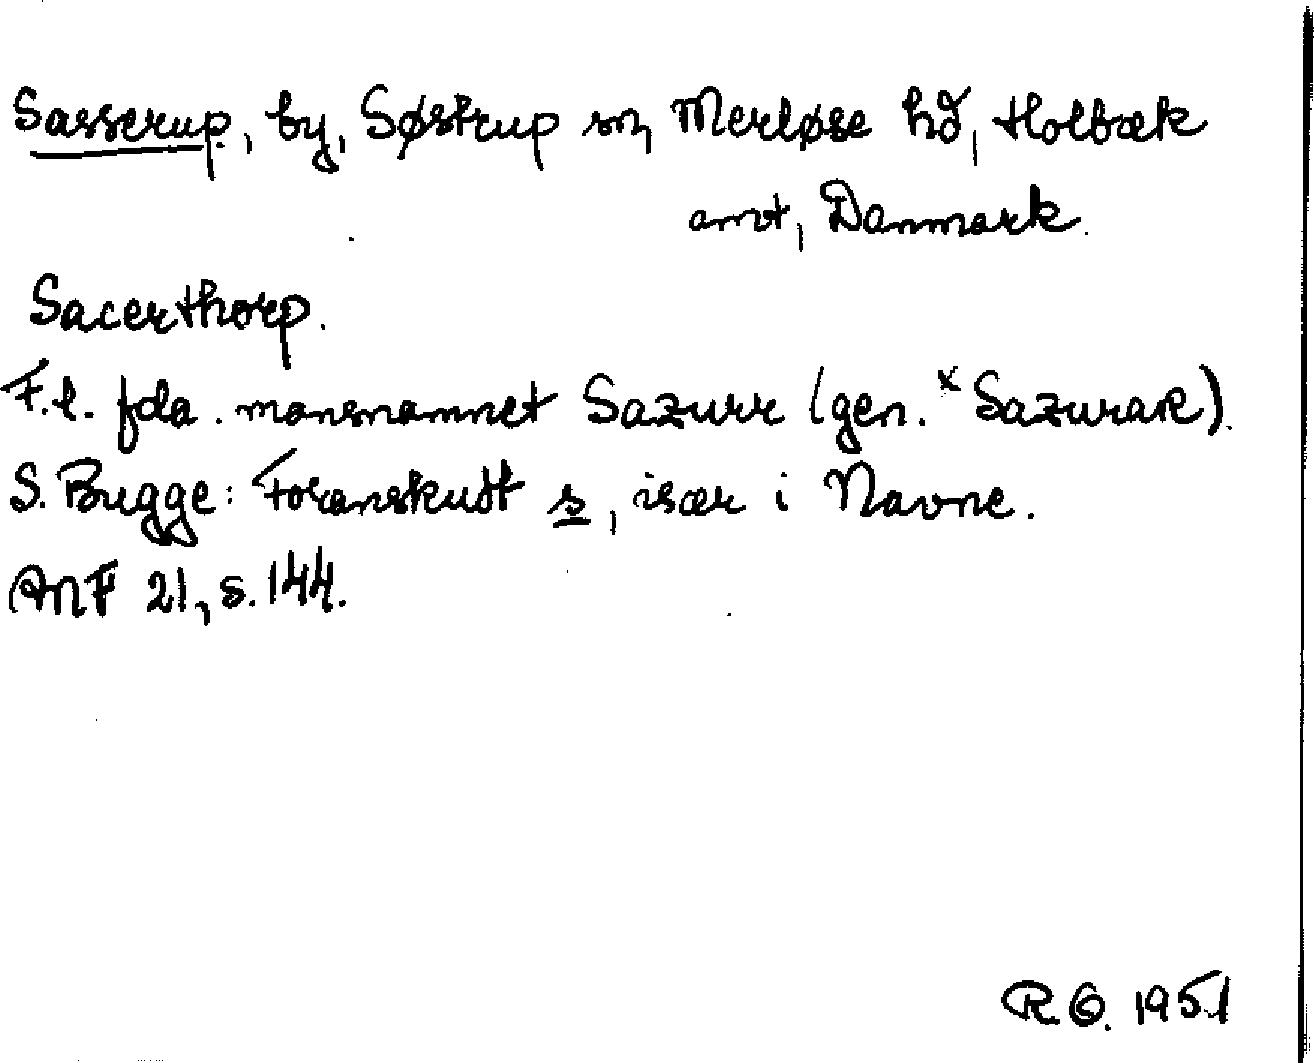 Sasserup, by, Søstrup sn, Merløse hd, Holbæk
amt, Danmark.
Sacerthorp.
F.l. fda. mansnamnet Sazurr (gen. *Sazurar).
S. Bugge: Foranskudt s, især i Navne.
ANF 21, s. 144.
R.O. 1951